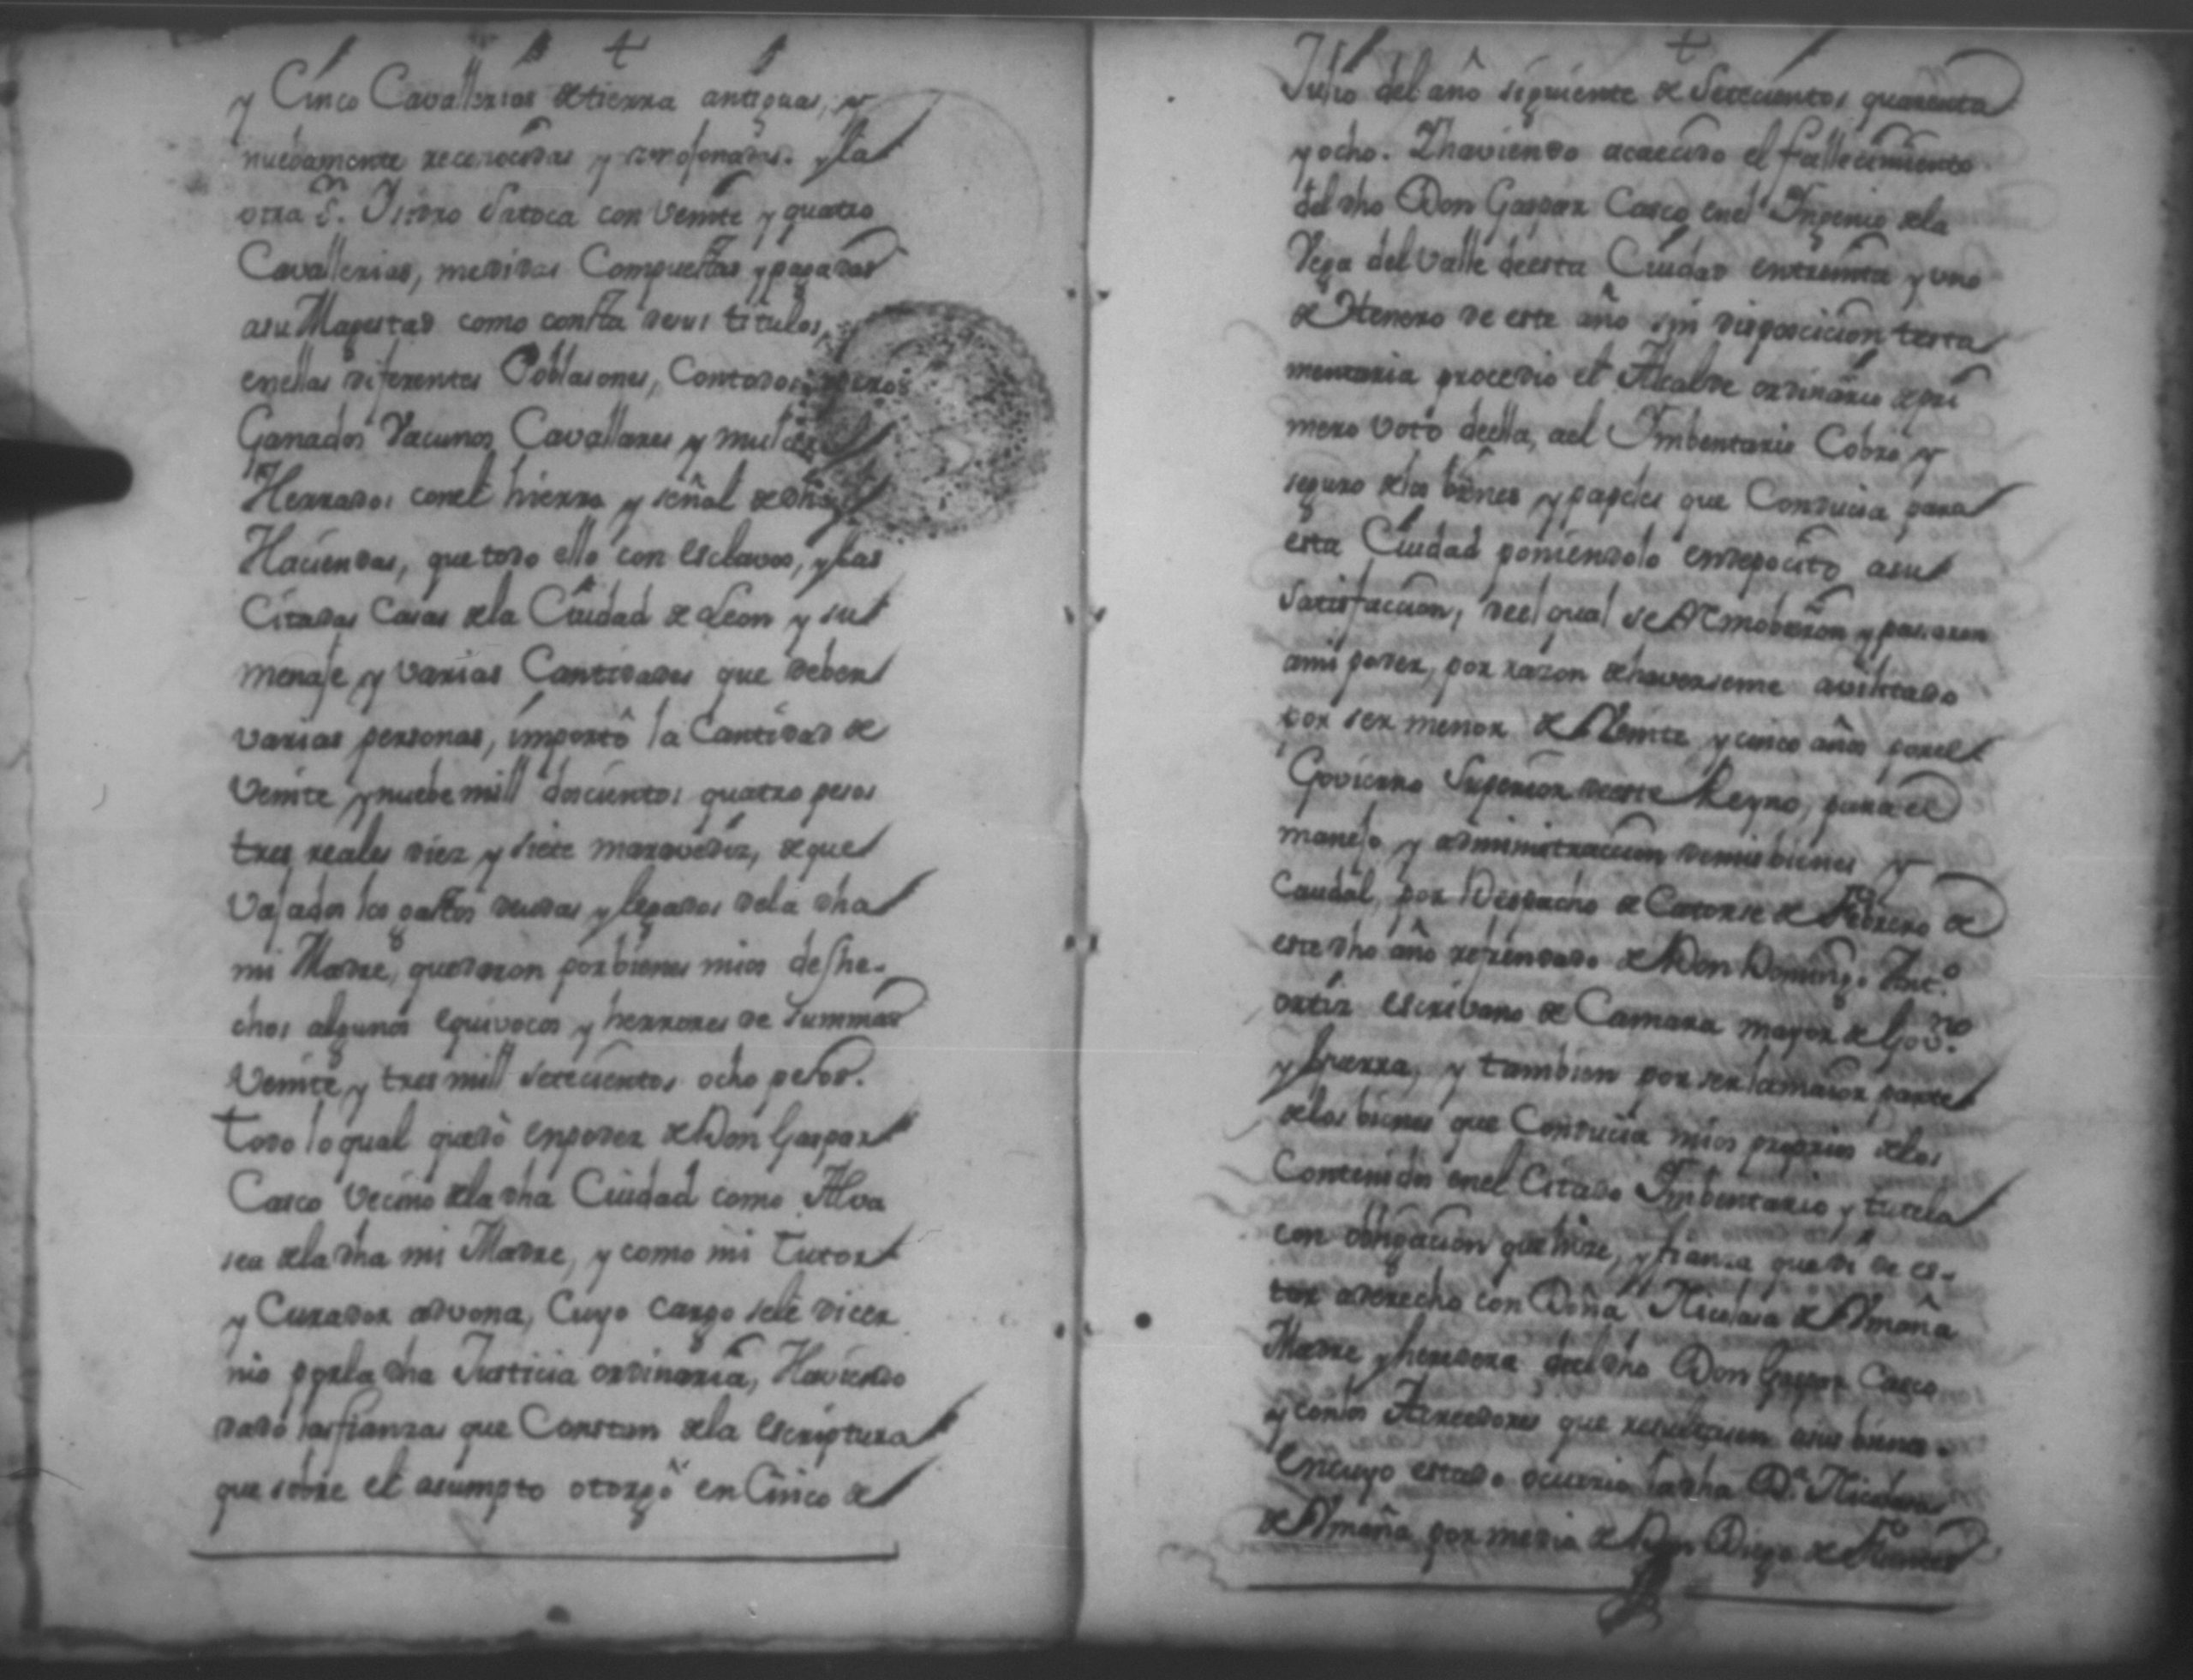 y Cinco Cavallerias de tierra antiguas, y
nuebamente reconocidas y amojonadas. y la
otra S.n Isidro Satoca con Veinte y quatro
Cavallerias, medidas Compuestas y pagadas
a su Magestad como consta de sus titulos,
en ellas diferentes Poblasones, Contados
Ganados Vacunos, Cavallares y mular
Herrados con el hierro y señal de dhas
Haciendas, que todo ello con esclavos, y las
Citadas Casas de la Ciudad de Leon y su
menaje y varias Cantidades que deben
varias personas, importó la Cantidad de
Veinte y nuebe mill doscientos quatro pesos
tres reales diez y siete maravediz, de que
Vajados los gastos deudas y legados de la dha
mi Madre, quedaron por bienes mios deshe-
chos algunos equivocos y herrores de summas
Veinte y tres mill setecientos ocho pesos.
todo lo qual quedó en poder de Don Gaspar
Casco Vecino de la dha Ciudad como Alva
sea de la dha mi Madre, y como mi tutor
y Curador adbona, Cuyo cargo se le dicer
nio por la dha Justicia ordinaria, Haviendo
dado las fianzas que Constan de la Escriptura
que sobre el asumpto otorgó en Cinco de
Julio del año siguiente de Setecientos quarenta
y ocho. Y haviendo acaecido el fallecimiento
del dho Don Gaspar Casco en el Ingenio de la
Vega del Valle de esta Ciudad en treinta y uno
de Henero de este año sin disposicion testa
mentaria procedio el Alcalde ordinario de pri
mero voto de ella, a el Imbentario Cobro y
seguro de los bienes y papeles que Conducia para
esta Ciudad poniendolo en deposito a su
Satisfaccion, de el qual se Removieron y pasaron
a mi poder, por razon de haverseme avilitado
por ser menor de Veinte y cinco años por el
Govierno Superior de este Reyno, para el
manejo y administraccion de mis bienes y
Caudal, por Despacho de Catorse de Febrero de
este dho año refrendado de Don Domingo Ant.o
ortiz escrivano de Camara mayor de Gov.no
y Guerra, y tambien por ser la maior parte
de los bienes que Conducia mios proprios de los
Contenidos en el Citado Imbentario y tutela
con obligacion que hize, y fianza que di de es-
tar a derecho con Doña Nicolasa de Almaña
Madre y heredera de el dho Don Gaspar Casco
y con los Acreedores que resultasen a sus bienes.
En cuyo estado ocurrio la dha D.a Nicolasa
de Almaña por medio de Don Diego de